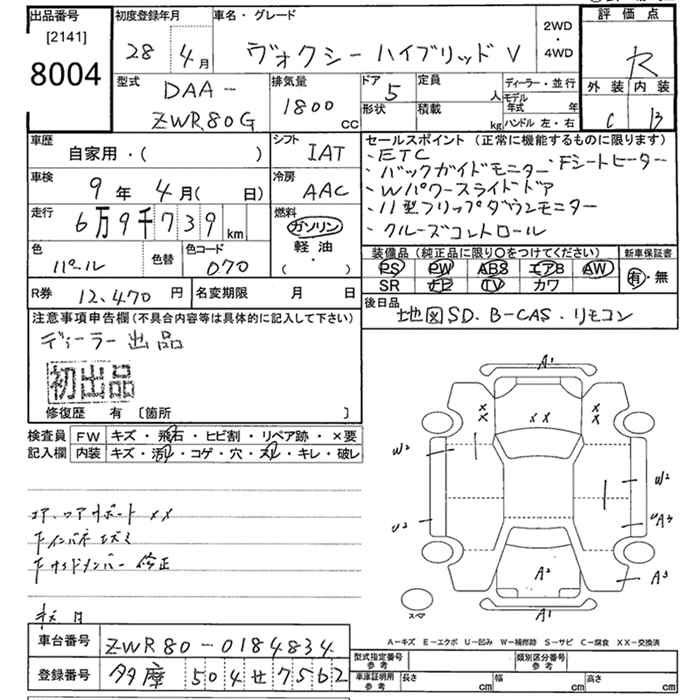 出品番号 初度登録年月 車名・グレード 評価点
[2141]
8004
28 4月 ヴォクシー ハイブリッド V 2WD・4WD R
型式 DAA-ZWR80G 排気量 1800 cc ドア 5 定員 人 ディーラー・並行
形状 積載 kg モデル年式 年 ハンドル 左・右
外装 内装
C B
車歴 自家用・( ) シフト IAT
車検 9年 4月( 日) 冷房 AAC
走行 6万9千739 km 燃料 ガソリン 軽油 ( ・ )
色 パール 色替 色コード 070
R券 12,470 円 名変期限 月 日
セールスポイント (正常に機能するものに限ります)
・ETC
・バックガイドモニター ・Fシートヒーター
・Wパワースライドドア
・11型フリップダウンモニター
・クルーズコントロール
装備品 (純正品に限り〇をつけてください) 新車保証書
PS PW ABS エアB AW 有・無
SR ナビ TV カワ
後日品 地図SD. B-CAS. リモコン
注意事項申告欄 (不具合内容等は具体的に記入して下さい)
ディーラー出品
初出品
修復歴 有 〔箇所 〕
検査員記入欄 FW キズ・飛石・ヒビ割・リペア跡・×要
内装 キズ・汚れ・コゲ・穴・スレ・キレ・破レ
コア.コアサポート ××
A1
×
×
× ×
×
×
W2
W2
U2
A2
A3
A1
スペア
A-キズ E-エクボ U-凹み W-補修跡 S-サビ C-腐食 XX-交換済
車台番号 ZWR80-0184834
登録番号 多摩 504 せ 7562
型式指定番号 参考 類別区分番号 参考
車庫証明用 参考 長さ cm 幅 cm 高さ cm